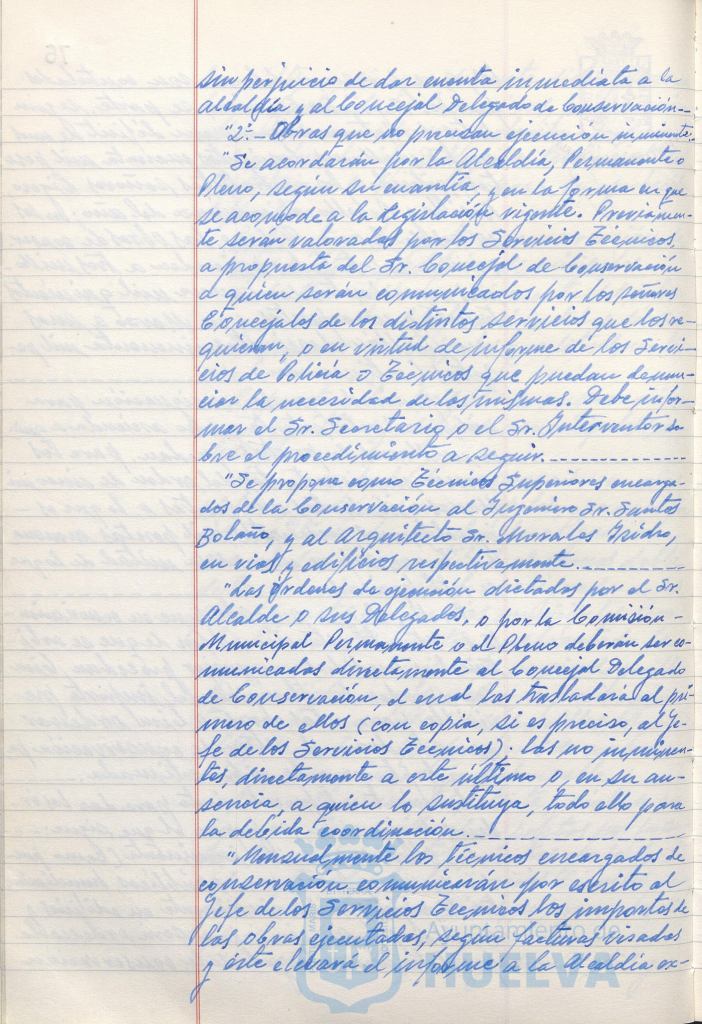 sin perjuicio de dar cuenta inmediata a la
alcaldía y al Concejal Delegado de Conservación.-
"2º.- Obras que no precisan ejecución inminente.
"Se acordarán por la Alcaldía, Permanente o
Pleno, según su cuantía, y en la forma en que
se acomode a la legislación vigente. Previamen-
te serán valorados por los Servicios Técnicos,
a propuesta del Sr. Concejal de Conservación
a quien serán comunicados por los señores
Concejales de los distintos servicios que los re-
quieran, o en virtud de informe de los Servi-
cios de Policía o Técnicos que puedan denun-
ciar la necesidad de las mismas. Debe infor-
mar el Sr. Secretario o el Sr. Interventor so-
bre el procedimiento a seguir.
"Se propone como Técnicos Superiores encarga-
dos de la Conservación al Ingeniero Sr. Santos
Bolaño, y al Arquitecto Sr. Morales Isidro,
en vías y edificios respectivamente.
"Las órdenes de ejecución dictadas por el Sr.
Alcalde o sus Delegados, o por la Comisión-
Municipal Permanente o el Pleno deberán ser co-
municadas directamente al Concejal Delegado
de Conservación, el cual las trasladará al pri-
mero de ellos (con copia, si es preciso, al Je-
fe de los Servicios Técnicos); las no inminen-
tes, directamente a este último o, en su au-
sencia, a quien lo sustituya, todo ello para
la debida coordinación.
"Mensualmente los técnicos encargados de
conservación comunicarán por escrito al
Jefe de los Servicios Técnicos los importes de
las obras ejecutadas, según facturas visadas
y éste elevará el informe a la Alcaldía ex-
Ayuntamiento de
HUELVA